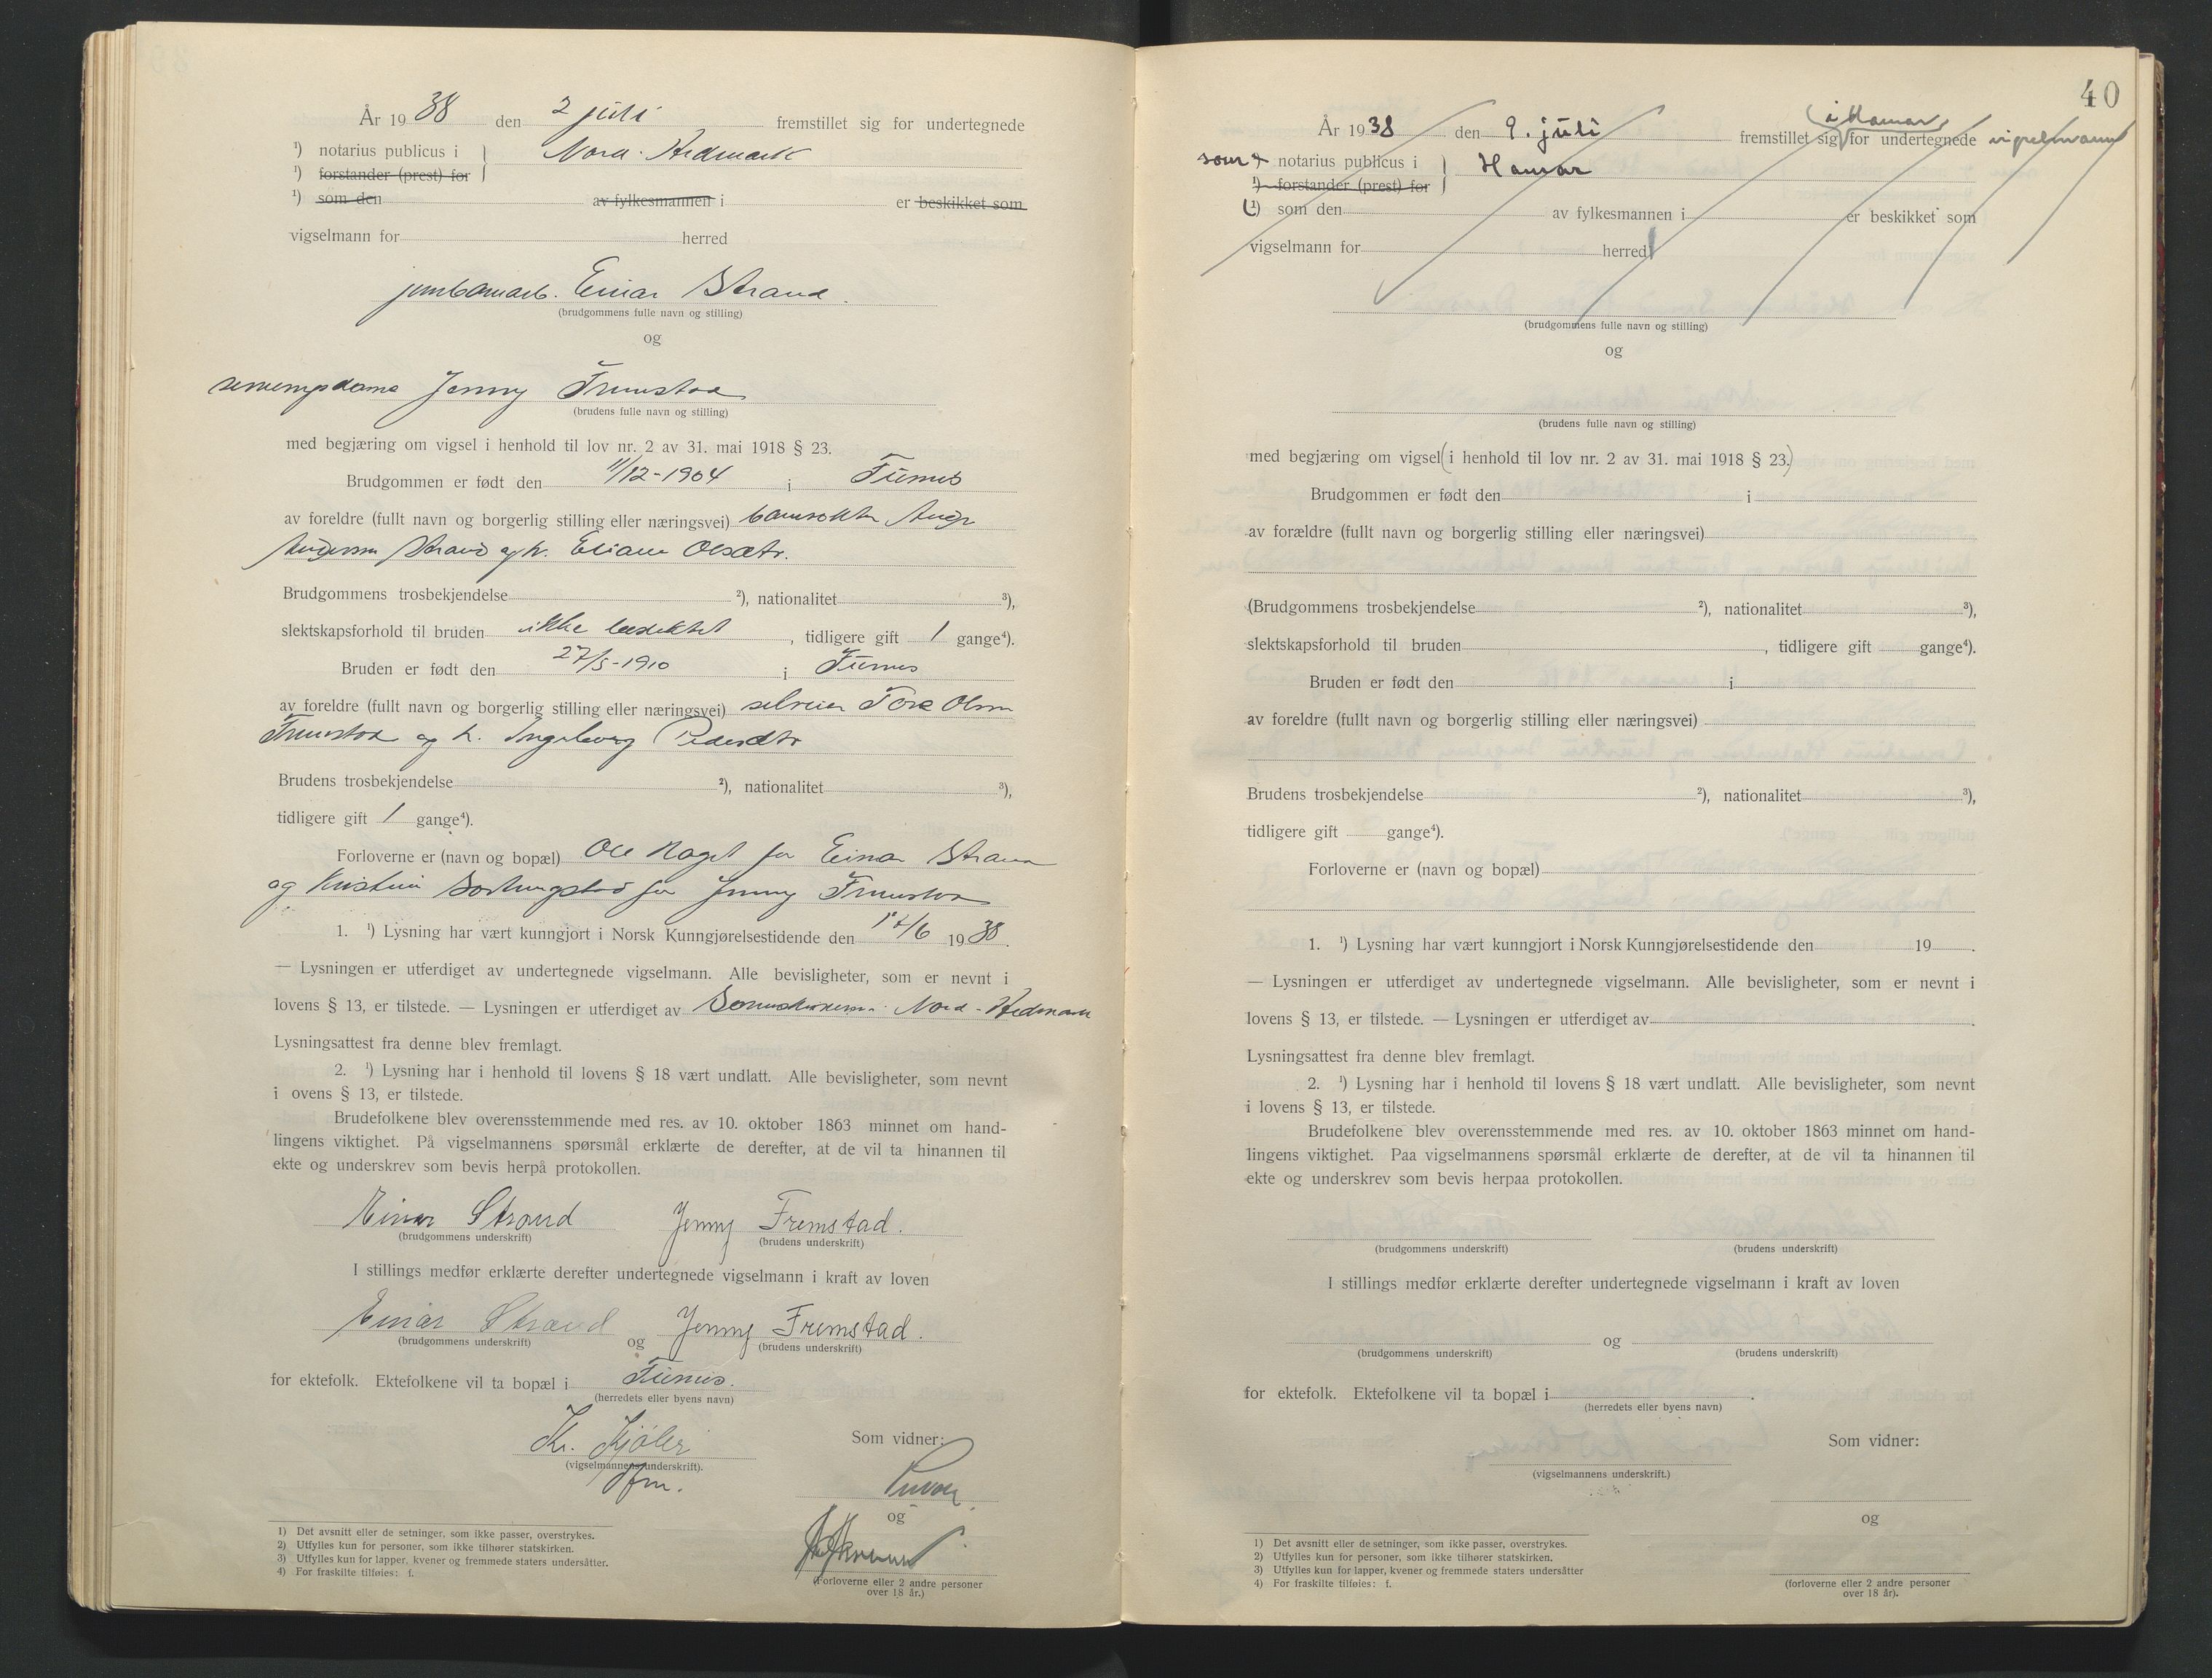 År 1938 den 2 juli fremstillet sig for undertegnede
¹) notarius publicus i } Nord-Hedmark
¹) forstander (prest) for
¹) som den av fylkesmannen i er beskikket som
vigselmann for herred
Einar Strand
(brudgommens fulle navn og stilling)
og
Jenny Fremstad
(brudens fulle navn og stilling)
med begjæring om vigsel i henhold til lov nr. 2 av 31. mai 1918 § 23.
Brudgommen er født den 11/12-1904 i Furnes
av foreldre (fullt navn og borgerlig stilling eller næringsvei)
Strand og h.
Brudgommens trosbekjendelse ²), nationalitet ³),
slektskapsforhold til bruden ikke beslektet, tidligere gift 1 gange⁴).
Bruden er født den 27/5-1910 i Furnes
av foreldre (fullt navn og borgerlig stilling eller næringsvei) Tore Olsen
Fremstad og h. Ingeborg Pedersdtr
Brudens trosbekjendelse ²), nationalitet ³),
tidligere gift 1 gange⁴).
Forloverne er (navn og bopæl) Ole Haget for Einar Strand
og for Jenny Fremstad
1. ¹) Lysning har vært kunngjort i Norsk Kunngjørelsestidende den 17/6 1938.
— Lysningen er utferdiget av undertegnede vigselmann. Alle bevisligheter, som er nevnt i
lovens § 13, er tilstede. — Lysningen er utferdiget av Sorenskriveren i Nord-Hedmark
Lysningsattest fra denne blev fremlagt.
2. ¹) Lysning har i henhold til lovens § 18 vært undlatt. Alle bevisligheter, som nevnt
i ovens § 13, er tilstede.
Brudefolkene blev overensstemmende med res. av 10. oktober 1863 minnet om hand-
lingens viktighet. På vigselmannens spørsmål erklærte de derefter, at de vil ta hinannen til
ekte og underskrev som bevis herpå protokollen.
Einar Strand Jenny Fremstad.
(brudgommens underskrift) (brudens underskrift)
I stillings medfør erklærte derefter undertegnede vigselmann i kraft av loven
Einar Strand og Jenny Fremstad.
(brudgommens underskrift) (brudens underskrift)
for ektefolk. Ektefolkene vil ta bopæl i Furnes.
(herredets eller byens navn)
Kr. Kjøler
(vigselmannens underskrift).
Som vidner:
og
(Forloverne eller 2 andre personer
over 18 år.)
1) Det avsnitt eller de setninger, som ikke passer, overstrykes.
2) Utfylles kun for personer, som ikke tilhører statskirken.
3) Utfylles kun for lapper, kvener og fremmede staters undersåtter.
4) For fraskilte tilføies: f.
40
År 1938 den 9. juli fremstillet sig (i Hamar) for undertegnede vigselmann
som ¹) notarius publicus i } Hamar
¹) forstander (prest) for
(¹) som den av fylkesmannen i er beskikket som
vigselmann for herred)
(brudgommens fulle navn og stilling)
og
(brudens fulle navn og stilling)
med begjæring om vigsel (i henhold til lov nr. 2 av 31. mai 1918 § 23.)
Brudgommen er født den i
av forældre (fullt navn og borgerlig stilling eller næringsvei)
(Brudgommens trosbekjendelse ²), nationalitet ³),
slektskapsforhold til bruden , tidligere gift gange⁴).
Bruden er født den i
av foreldre (fullt navn og borgerlig stilling eller næringsvei)
Brudens trosbekjendelse ²), nationalitet ³),
tidligere gift gange⁴).
Forloverne er (navn og bopæl)
1. ¹) Lysning har vært kunngjort i Norsk Kunngjørelsestidende den 19 .
— Lysningen er utferdiget av undertegnede vigselmann. Alle bevisligheter, som er nevnt i
lovens § 13, er tilstede. — Lysningen er utferdiget av .
Lysningsattest fra denne blev fremlagt.
2. ¹) Lysning har i henhold til lovens § 18 vært undlatt. Alle bevisligheter, som nevnt
i lovens § 13, er tilstede.
Brudefolkene blev overensstemmende med res. av 10. oktober 1863 minnet om hand-
lingens viktighet. Paa vigselmannens spørsmål erklærte de derefter, at de vil ta hinannen til
ekte og underskrev som bevis herpaa protokollen.
(brudgommens underskrift) (brudens underskrift)
I stillings medfør erklærte derefter undertegnede vigselmann i kraft av loven
og
(brudgommens underskrift) (brudens underskrift)
for ektefolk. Ektefolkene vil ta bopæl i .
(herredets eller byens navn)
Som vidner:
(vigselmannens underskrift.)
og
(forloverne eller 2 andre personer
over 18 år).
1) Det avsnitt eller de setninger, som ikke passer, overstrykes.
2) Utfylles kun for personer, som ikke tilhører statskirken.
3) Utfylles kun for lapper, kvener og fremmede staters undersåtter
4) For fraskilte tilføies: f.